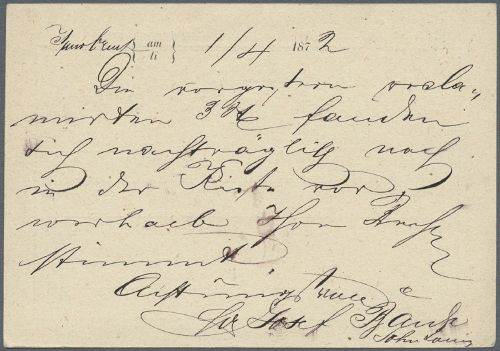 am
li 1/4 1872
Die vorgestern recla-
mirten 3 fanden
sich nachträglich noch
in der Kiste vor,
weshalb Ihre
stimmt.
Achtungsvoll
Josef